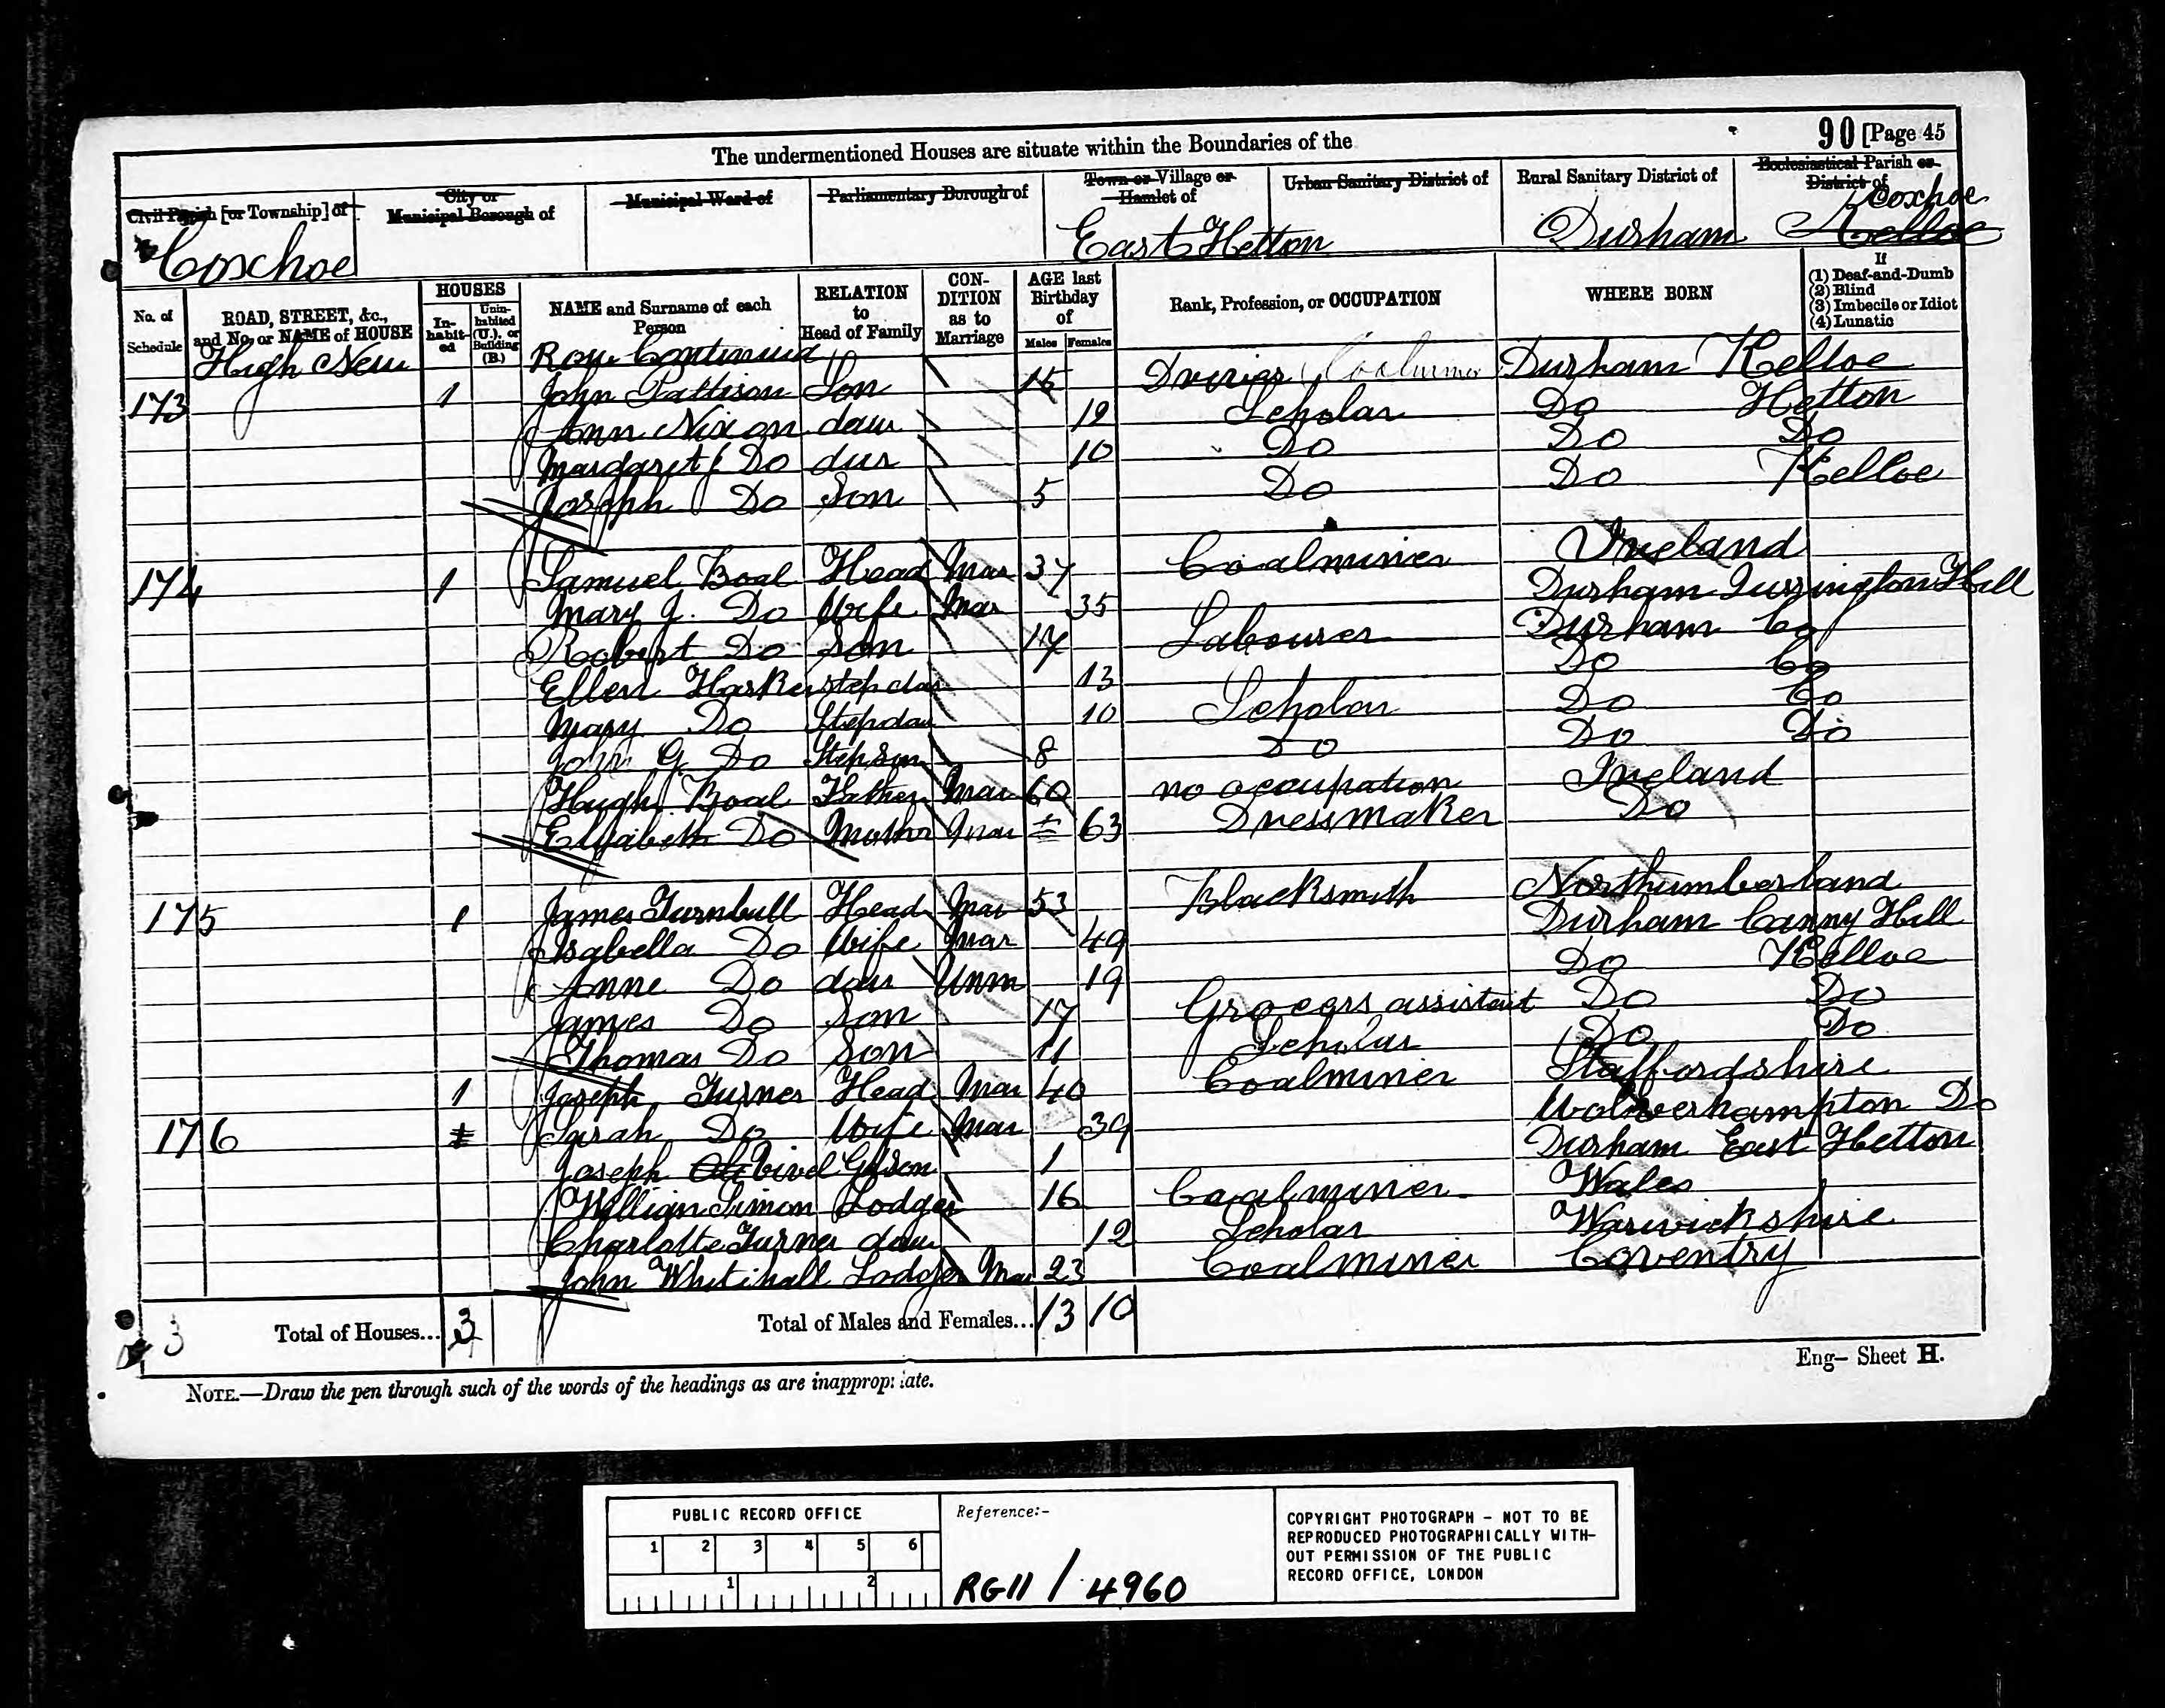 The undermentioned Houses are situate within the Boundaries of the
90 [Page 45
Civil Parish [or Township] of
City or Municipal Borough of
Municipal Ward of
Parliamentary Borough of
Town or Village or Hamlet of
Urban Sanitary District of
Rural Sanitary District of
Ecclesiastical Parish or District of
Coxhoe East Hetton Durham Coxhoe Kelloe
No. of Schedule
ROAD, STREET, &c., and No. or NAME of HOUSE
HOUSES
In-habit-ed
Unin-habited (U.), or Building (B.)
NAME and Surname of each Person
RELATION to Head of Family
CON-DITION as to Marriage
AGE last Birthday of
Males Females
Rank, Profession, or OCCUPATION
WHERE BORN
If
(1) Deaf-and-Dumb
(2) Blind
(3) Imbecile or Idiot
(4) Lunatic
High New Row Continued
173 1 John Pattison Son 15 Driver Durham Kelloe
Ann Nixon daur 12 Scholar Do Hetton
Margaret J Do dur 10 Do Do Do
Joseph Do Son 5 Do Do Kelloe
174 1 Samuel Boal Head Mar 37 Coalminer Ireland
Mary J. Do Wife Mar 35 Durham Turrington Hill
Robert Do Son 17 Labourer Durham Co
Ellen Harker stepdar 13 Do Co
Mary Do Stepdau 10 Scholar Do Co
John G Do Stepson 8 Do Do Do
Hugh Boal Father Mar 60 no occupation Ireland
Elizabeth Do Mother Mar 63 Dressmaker Do
175 1 James Turnbull Head Mar 53 Blacksmith Northumberland
Isabella Do Wife Mar 49 Durham Canny Hill
Anne Do daur Unm 19 Do Kelloe
James Do Son 17 Grocers assistant Do Do
Thomas Do Son 11 Scholar Do Do
1 Joseph Turner Head Mar 40 Coalminer Staffordshire
176 Sarah Do Wife Mar 39 Wolverhampton Do
Joseph GdSon 1 Durham East Hetton
William Simon Lodger 16 Coalminer Wales
Charlotte Turner daur 12 Scholar Warwickshire
John Whitihall Lodger Mar 23 Coalminer Coventry
3 Total of Houses... 3 Total of Males and Females... 13 10
Eng- Sheet H.
NOTE.—Draw the pen through such of the words of the headings as are inappropriate.
PUBLIC RECORD OFFICE
1 2 3 4 5 6
1 2
Reference:-
RG11 / 4960
COPYRIGHT PHOTOGRAPH - NOT TO BE
REPRODUCED PHOTOGRAPHICALLY WITH-
OUT PERMISSION OF THE PUBLIC
RECORD OFFICE, LONDON